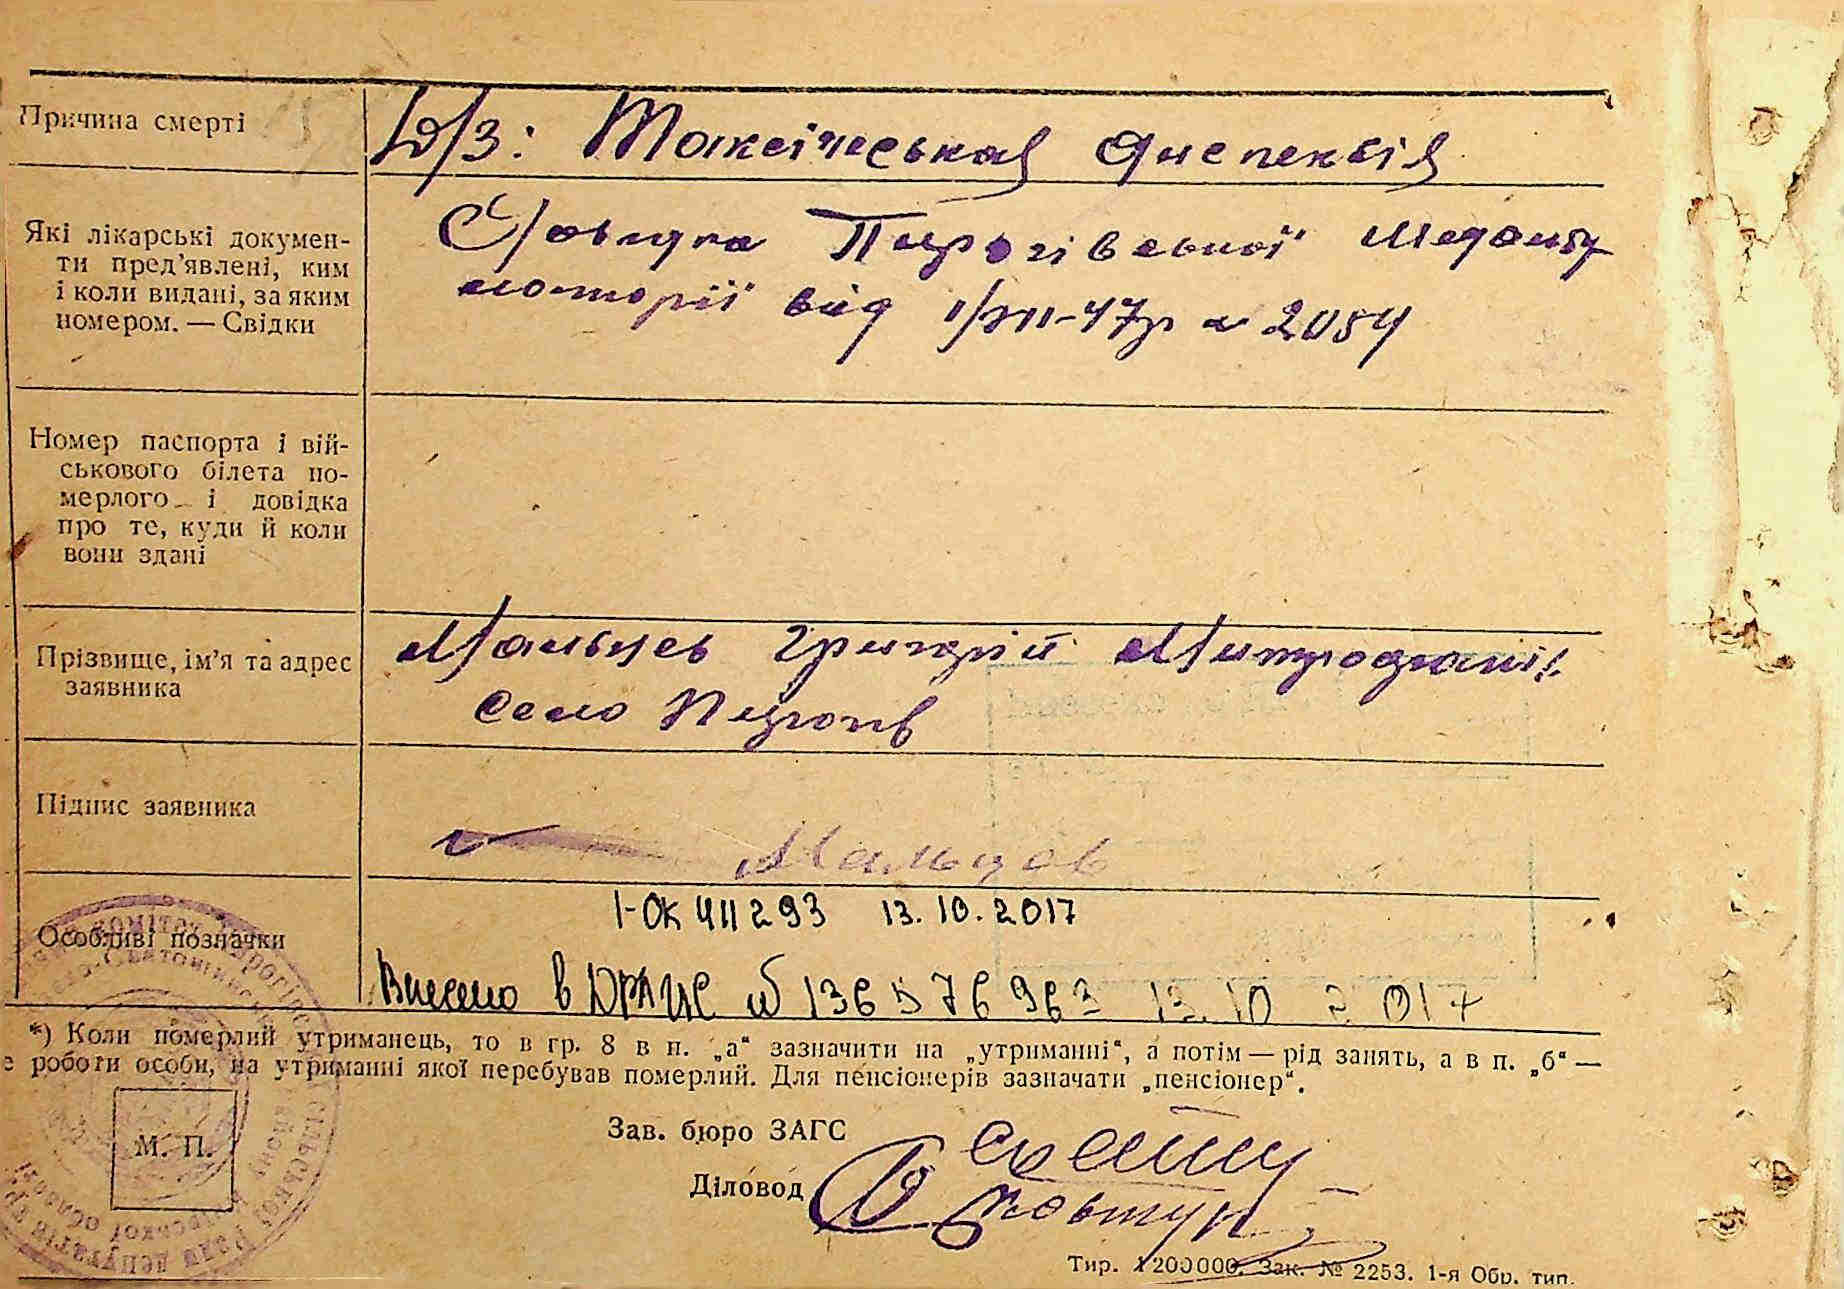 Причина смерті
Д/З: Токсічеськая диспепсія
Які лікарські докумен-
ти пред'явлені, ким
і коли видані, за яким
номером. — Свідки
Довідка Пирогівської Медамбу
латорії від 1/VIII-47р № 2054
Номер паспорта і вій-
ськового білета по-
мерлого і довідка
про те, куди й коли
вони здані
Прізвище, ім'я та адрес
заявника
Мальцев Григорій Митрофанів.
село Пирогів
Підпис заявника
Мальцев
Особливі позначки
І-ОК 411293 13.10.2017
Внесено в ДРАЦС № 136576963 13.10 2017
*) Коли померлий утриманець, то в гр. 8 в п. „а“ зазначити на „утриманні“, а потім — рід занять, а в п. „б“ —
е роботи особи, на утриманні якої перебував померлий. Для пенсіонерів зазначати „пенсіонер“.
Зав. бюро ЗАГС
М. П.
Діловод
Ковтун
Тир. 1200000. Зак. № 2253. 1-я Обр. тип.